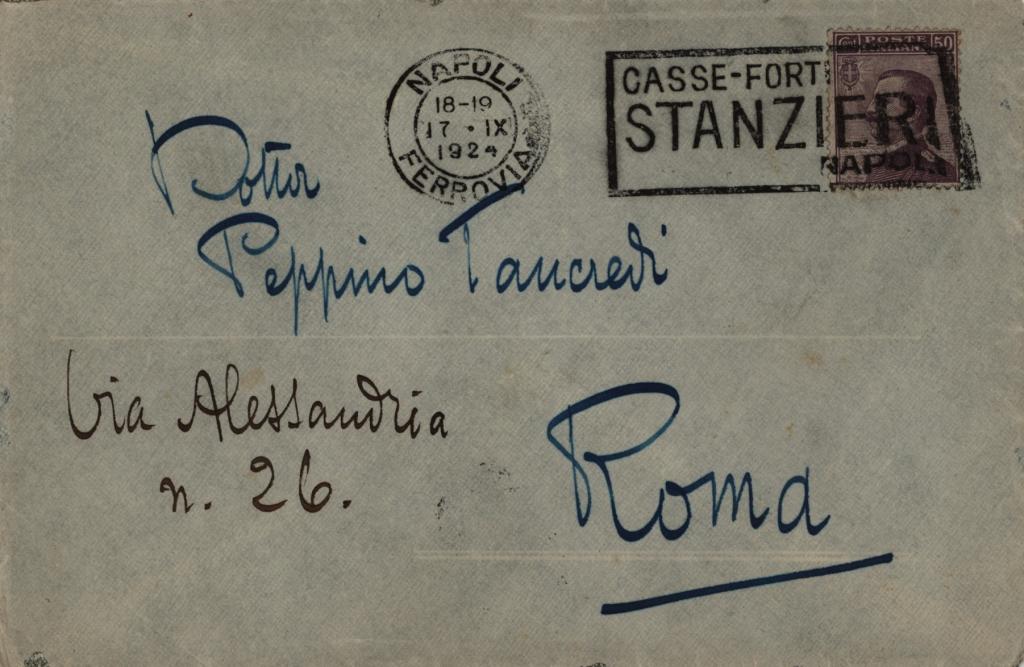 NAPOLI
18-19
17 • IX
1924
FERROVIA
CASSE-FORTI
STANZIERI
NAPOLI
POSTE 50
Dottor
Peppino Tancredi
Via Alessandria
n. 26.
Roma